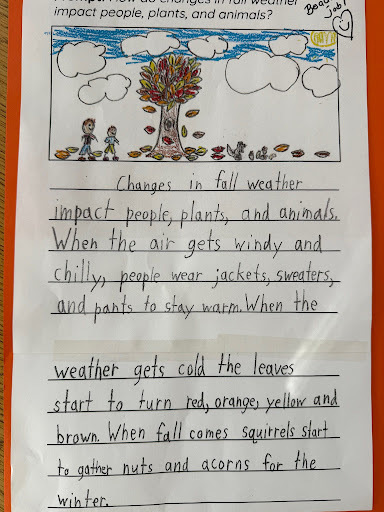 Prompt: How do changes in fall weather
impact people, plants, and animals?
job!
Changes in fall weather
impact people, plants, and animals.
When the air gets windy and
chilly, people wear jackets, sweaters,
and pants to stay warm. When the
weather gets cold the leaves
start to turn red, orange, yellow and
brown. When fall comes squirrels start
to gather nuts and acorns for the
winter.